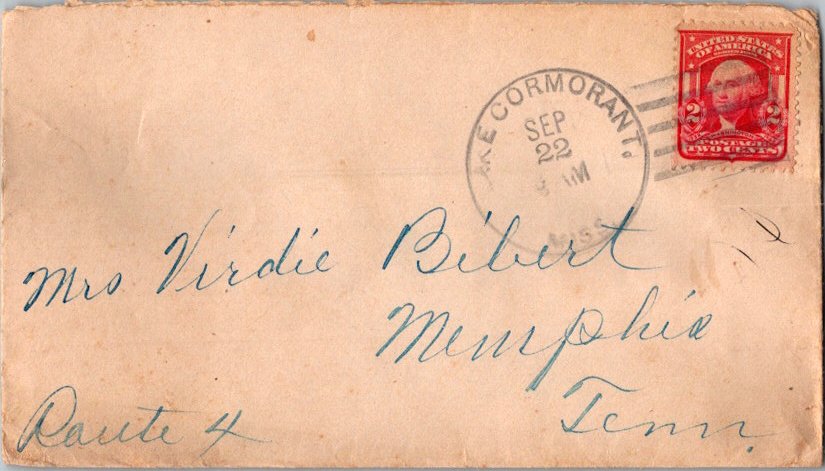 UNITED STATES
OF AMERICA
2 2
POSTAGE
TWO CENTS
LAKE CORMORANT.
SEP
22
AM
MISS.
Mrs Virdie Bibert
Memphis
Tenn.
Route 4